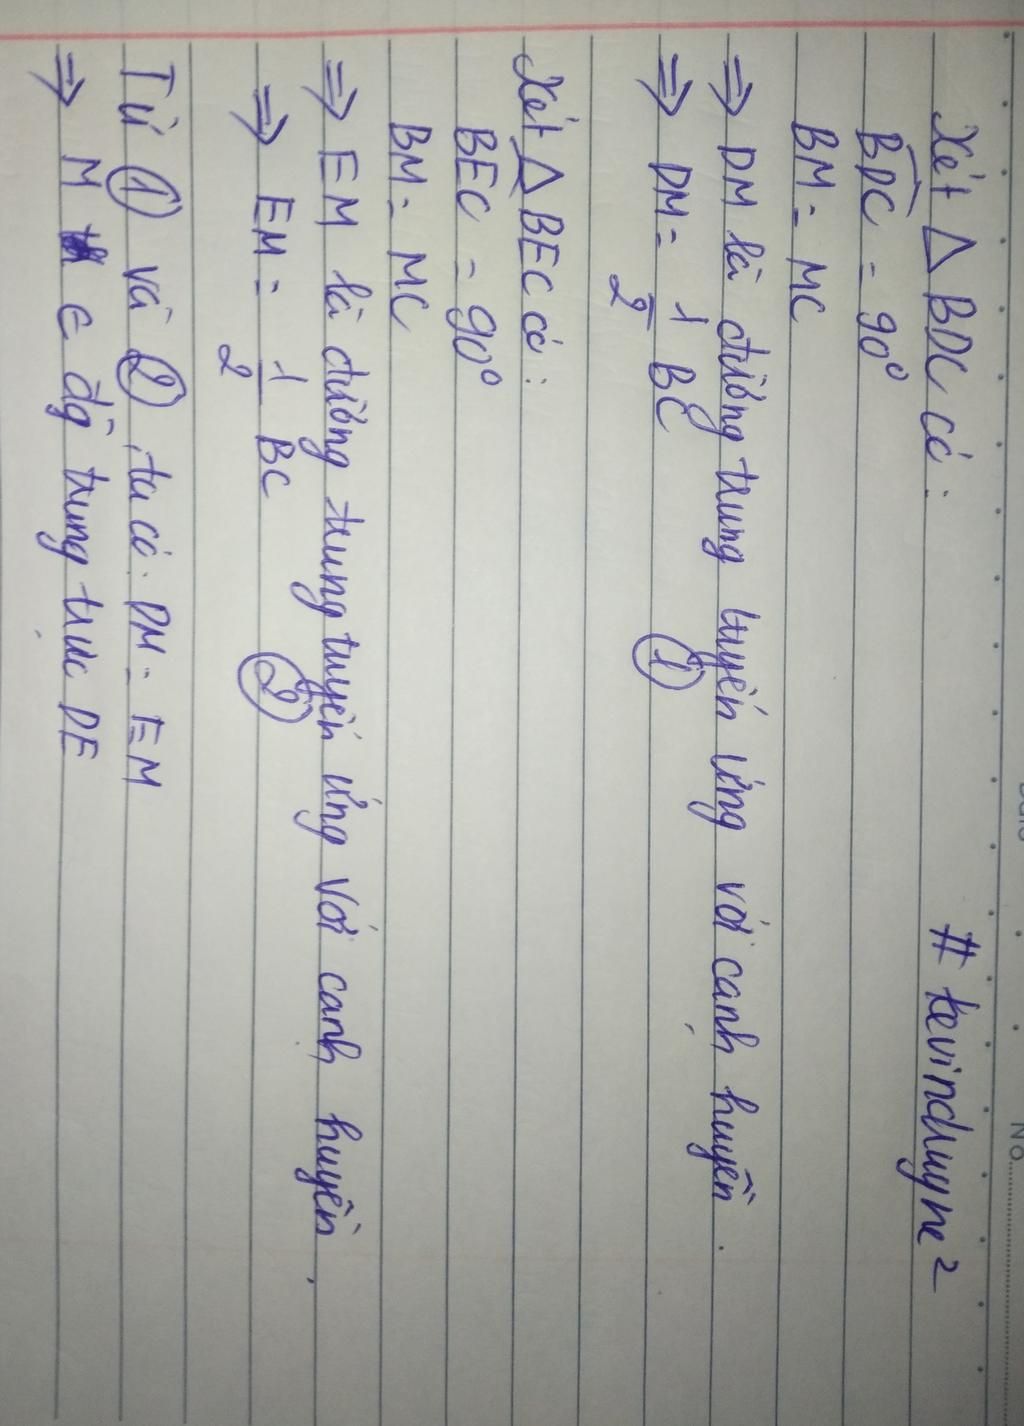 No
Xét Δ BDC có: # kevinduyne²
BDC = 90°
BM = MC
⇒ DM là đường trung tuyến ứng với cạnh huyền.
⇒ DM = 1/2 BC ①
Xét Δ BEC có:
BEC = 90°
BM = MC
⇒ EM là đường trung tuyến ứng với cạnh huyền.
⇒ EM = 1/2 BC ②
Từ ① và ②, ta có: DM = EM
⇒ M ∈ đg trung trực DE